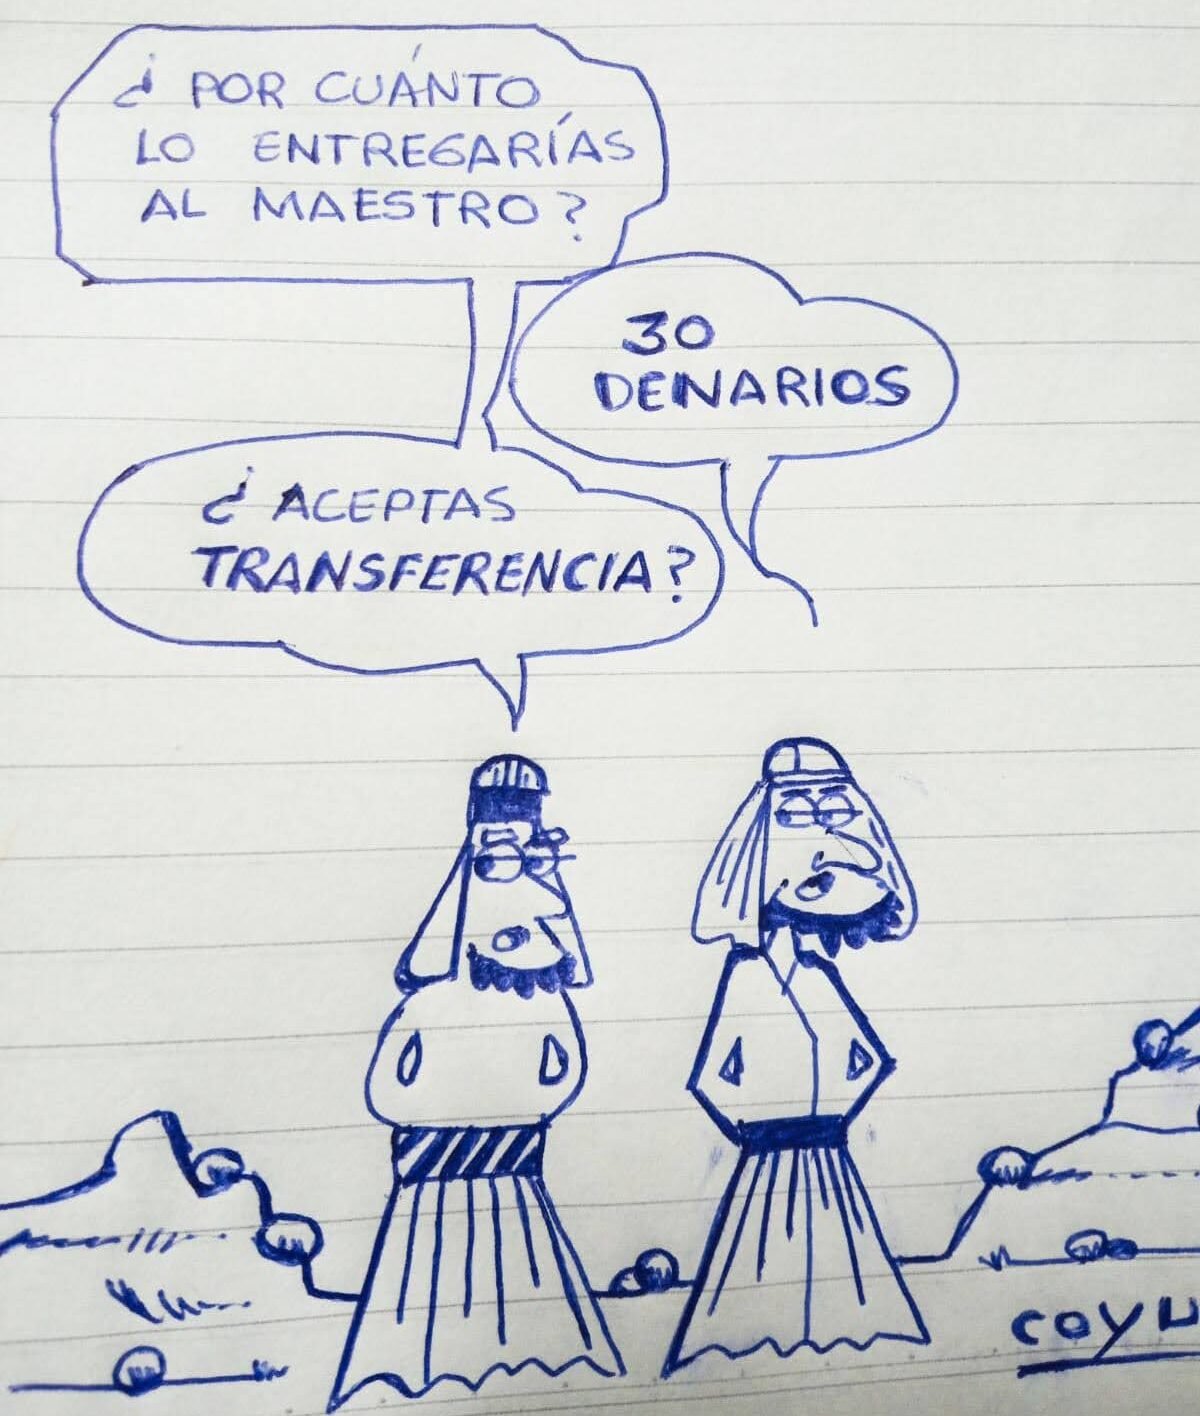 ¿ POR CUÁNTO
LO ENTREGARÍAS
AL MAESTRO?
30
DENARIOS
¿ ACEPTAS
TRANSFERENCIA?
COYU